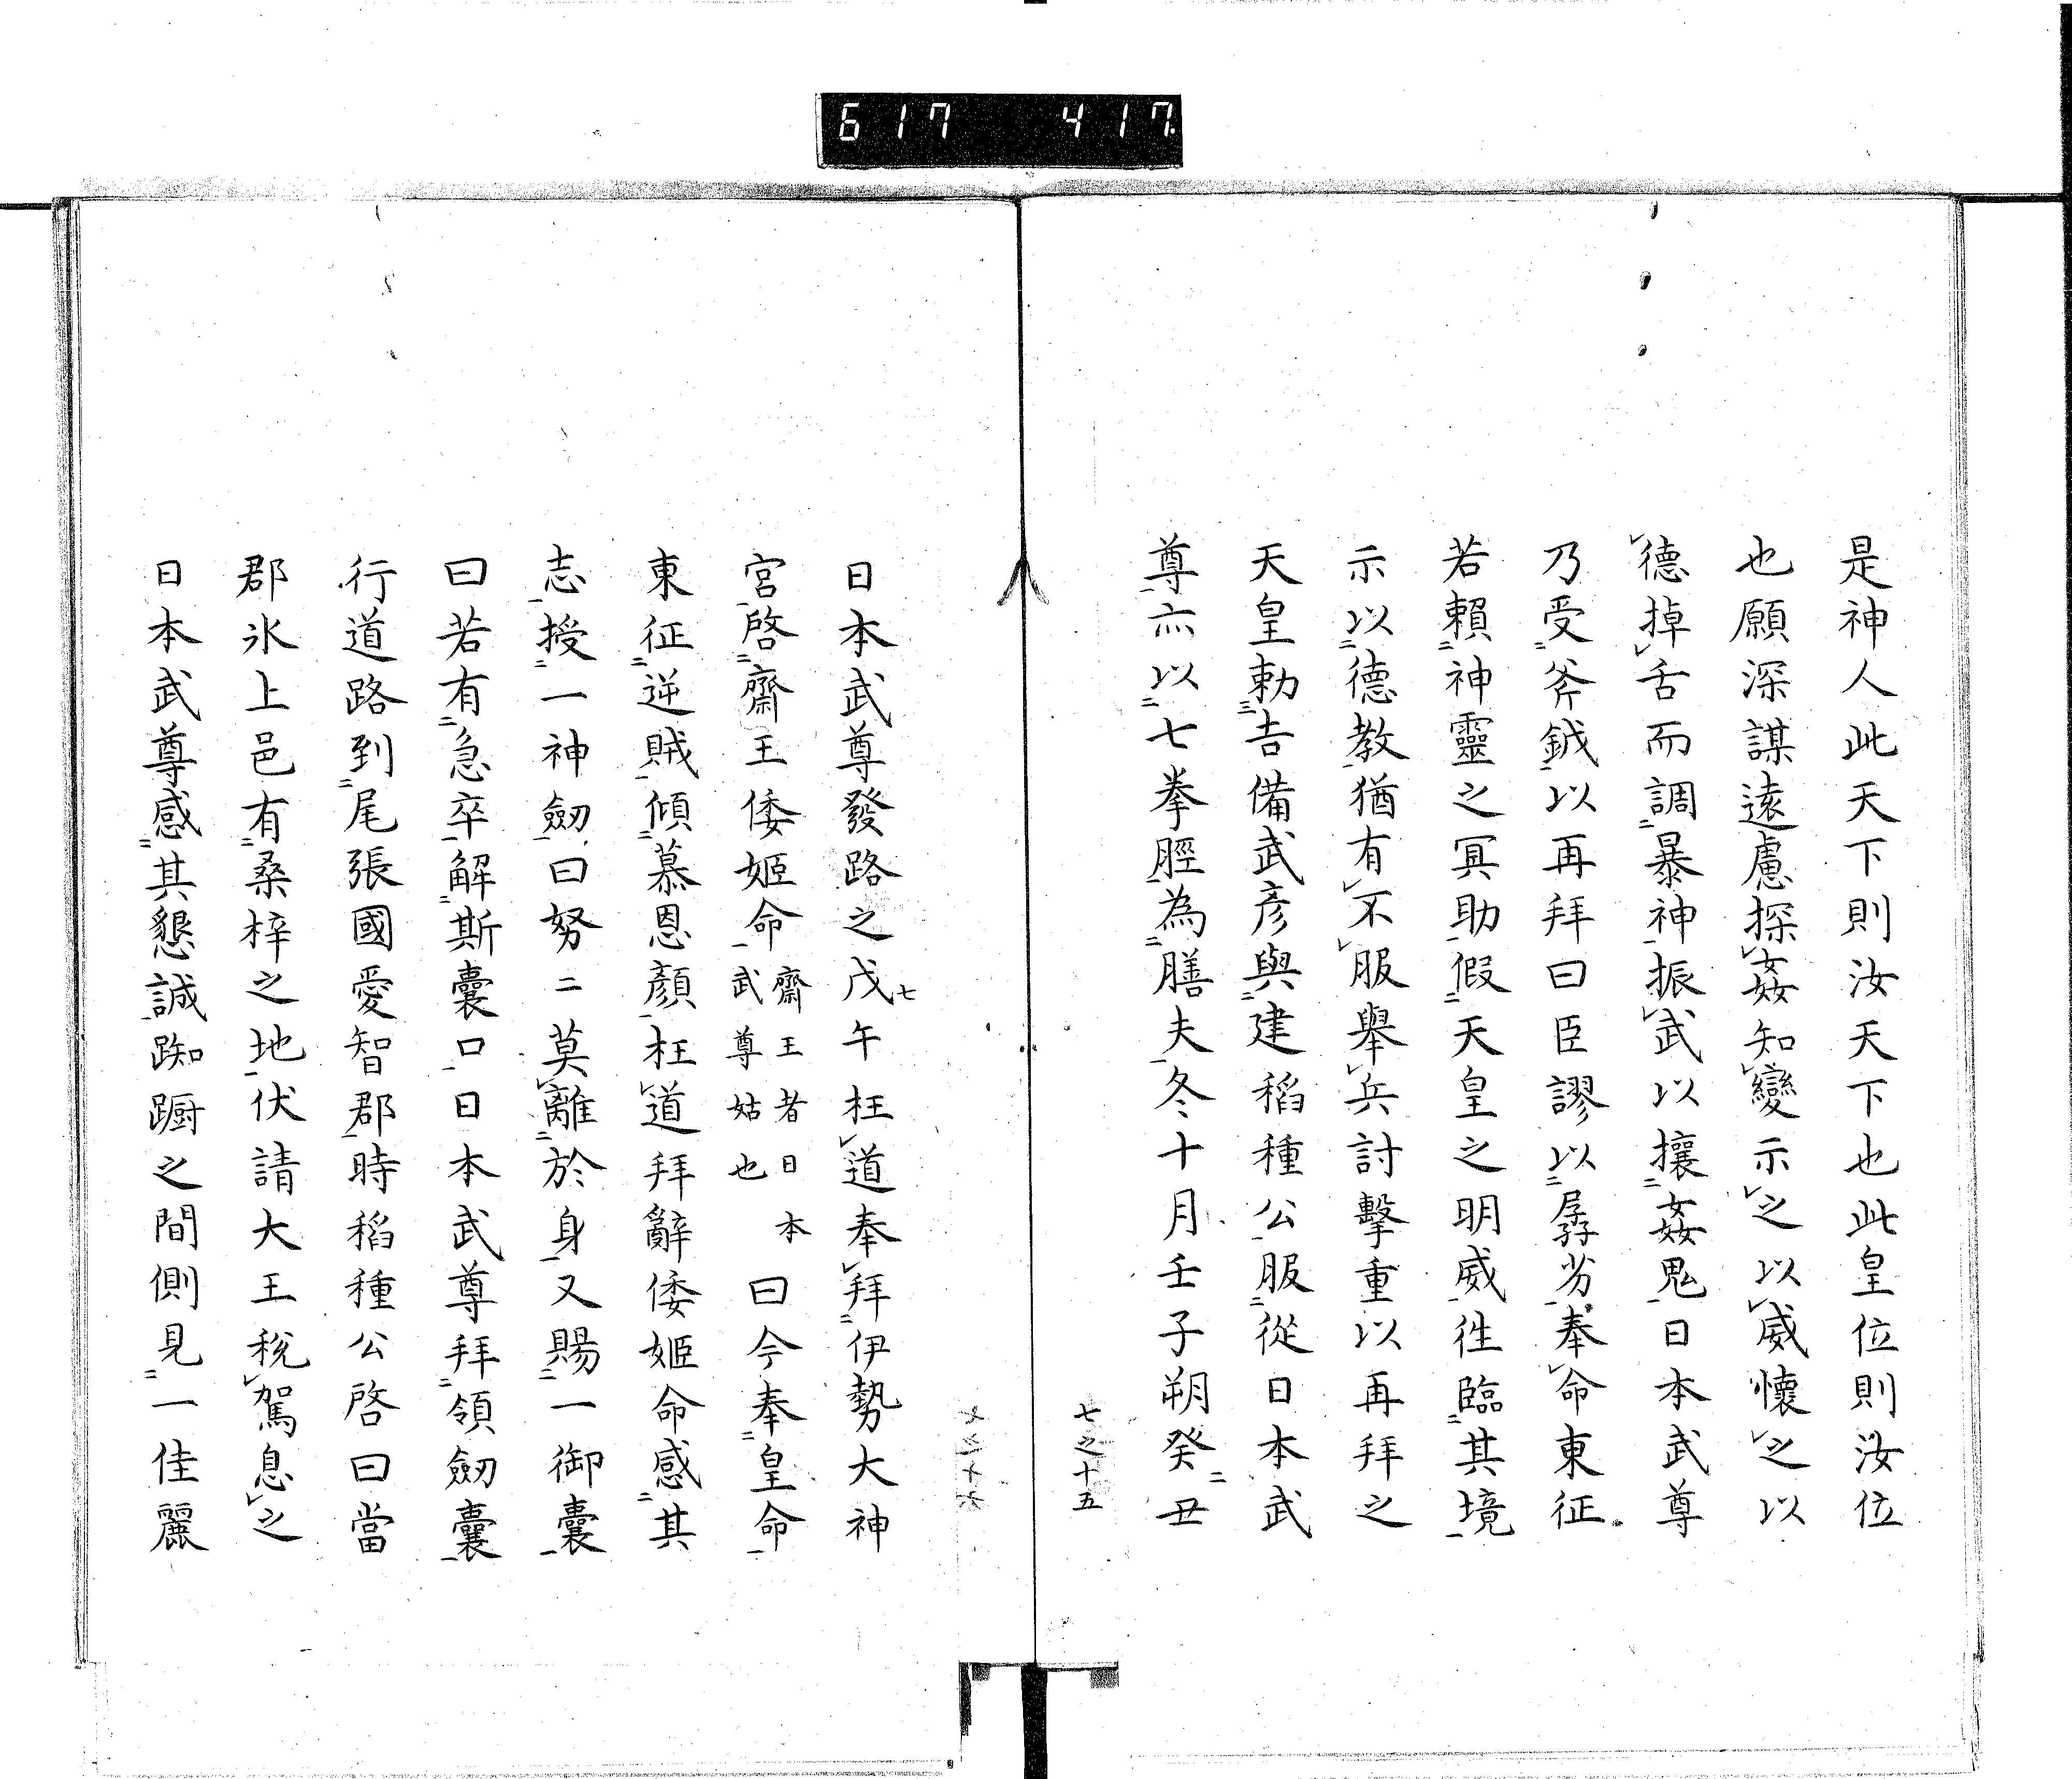 617 417
是神人此天下則汝天下也此皇位則汝位
也願深謀遠慮探姦知變示之以威懷之以
德掉舌而調暴神振武以攘姦鬼日本武尊
乃受斧鉞以再拜曰臣謬以孱劣奉命東征
若賴神靈之冥助假天皇之明威徃臨其境
示以德教猶有不服舉兵討擊重以再拜之
天皇勅吉備武彦與建稻種公服從日本武
尊亦以七拳脛為膳夫冬十月壬子朔癸丑
七之十五
日本武尊發路之戊午枉道奉拜伊勢大神
宮啓齋王倭姬命齋王者日本武尊姑也曰今奉皇命
東征逆賊傾慕恩顏枉道拜辭倭姬命感其
志授一神劔曰努二莫離於身又賜一御囊
曰若有急卒解斯囊口日本武尊拜領劔囊
行道路到尾張國愛智郡時稻種公啓曰當
郡氷上邑有桑梓之地伏請大王稅駕息之
日本武尊感其懇誠踟蹰之間側見一佳麗